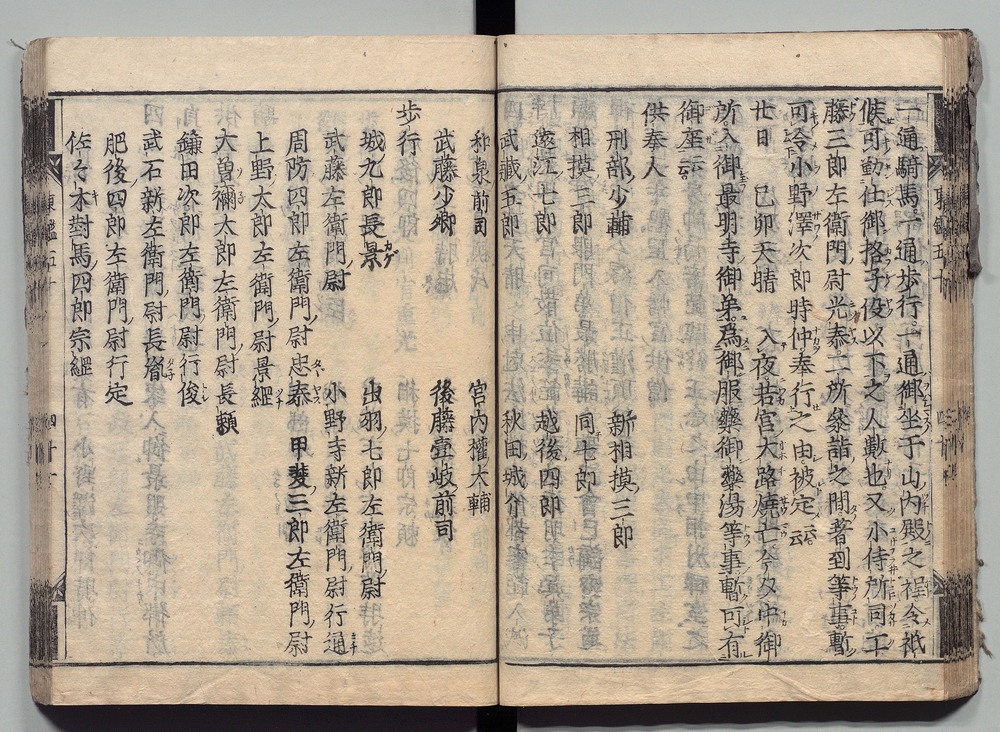 一通騎馬一通歩行一通御坐于山内殿之程令祗
候可勤仕御格子役以下之人數也又小侍所同工
藤三郎左衛門尉光泰二所參詣之間著到等事暫
可令小野澤次郎時仲奉行之由被定云云
廿日　己卯天晴　入夜若宮大路燒亡今夕中御
所入御最明寺御第爲御服藥御藥湯等事暫可有
御座云云
供奉人
刑部少輔　新相摸三郎
相摸三郎　同七郎
遠江七郎　越後四郎
武藏五郎　秋田城介
和泉前司　宮内權大輔
武藤少卿　後藤壹岐前司
歩行
城九郎長景　出羽七郎左衛門尉
武藤左衛門尉　小野寺新左衛門尉行通
周防四郎左衛門尉忠泰　甲斐三郎左衛門尉
上野太郎左衛門尉景經
大曽禰太郎左衛門尉長頼
鎌田次郎左衛門尉行俊
武石新左衛門尉長胤
肥後四郎左衛門尉行定
佐々木對馬四郎宗經